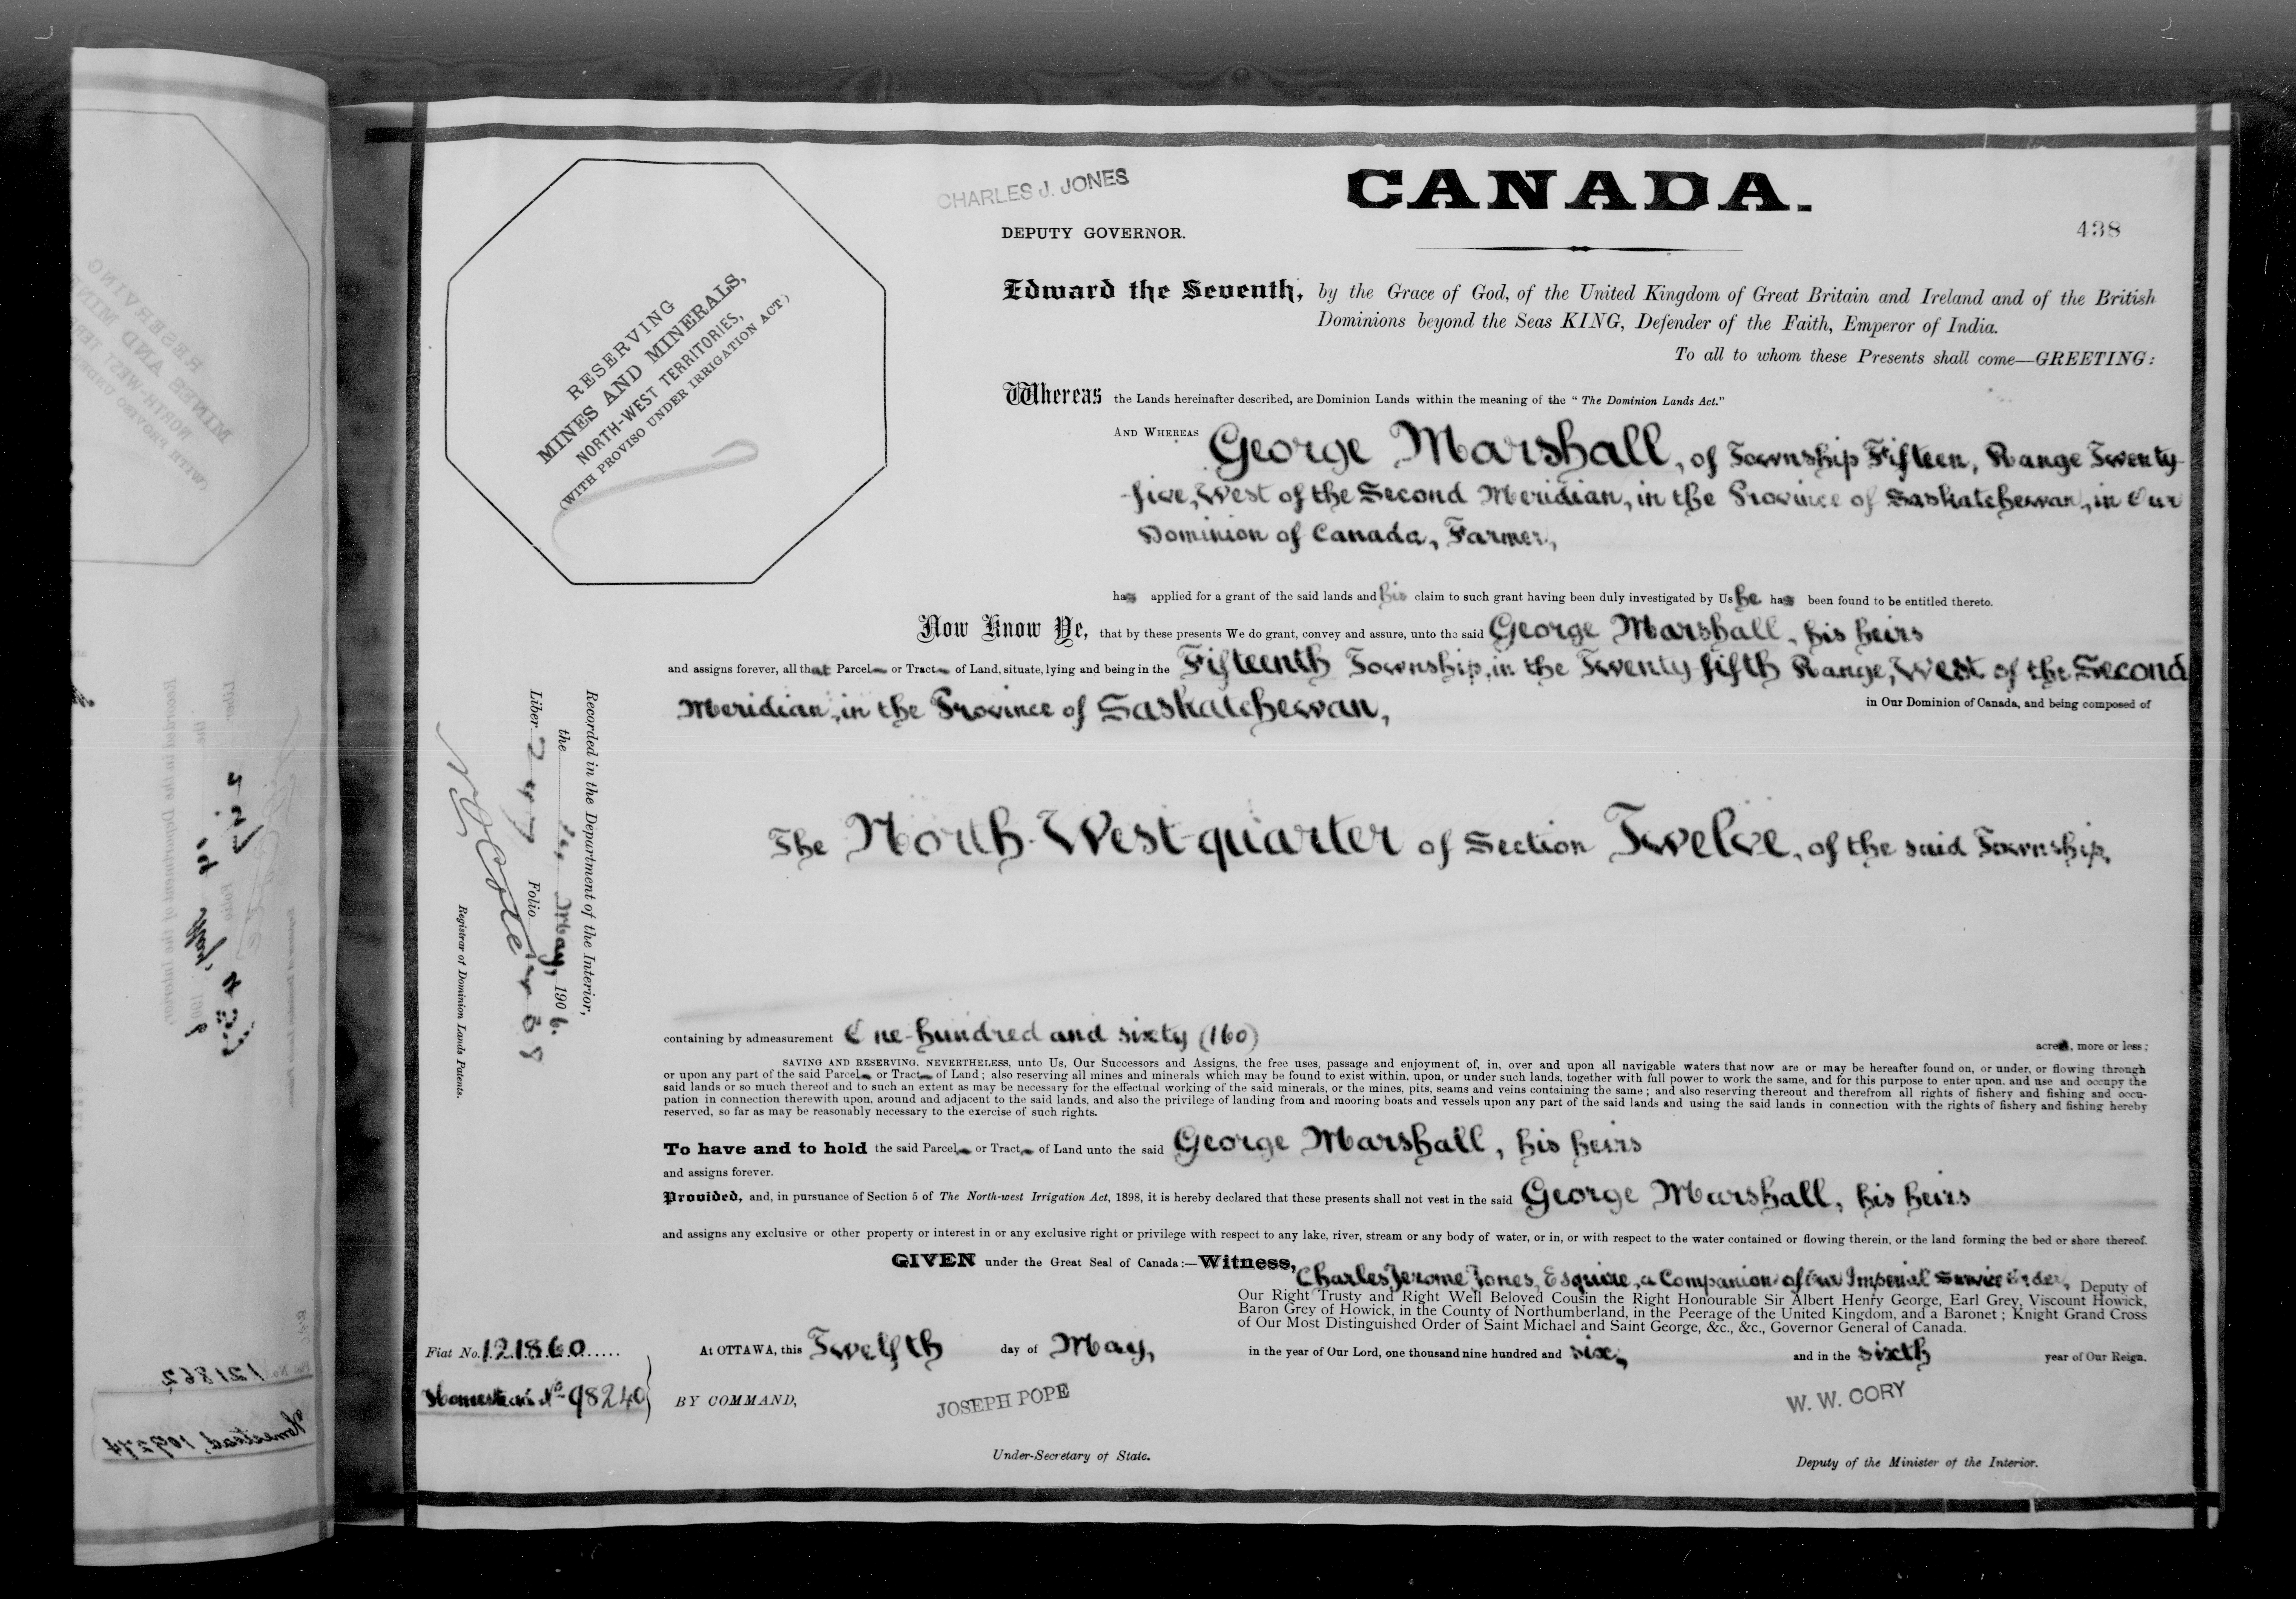 CHARLES J. JONES
CANADA.
DEPUTY GOVERNOR.
438
Edward the Seventh, by the Grace of God, of the United Kingdom of Great Britain and Ireland and of the British
Dominions beyond the Seas KING, Defender of the Faith, Emperor of India.
To all to whom these Presents shall come—GREETING:
RESERVING
MINES AND MINERALS,
NORTH-WEST TERRITORIES,
(WITH PROVISO UNDER IRRIGATION ACT)
Whereas the Lands hereinafter described, are Dominion Lands within the meaning of the "The Dominion Lands Act."
AND WHEREAS George Marshall, of Township Fifteen, Range Twenty-
five, West of the Second Meridian, in the Province of Saskatchewan, in Our
Dominion of Canada, Farmer,
has applied for a grant of the said lands and his claim to such grant having been duly investigated by Us he has been found to be entitled thereto.
Now Know Ye, that by these presents We do grant, convey and assure, unto the said George Marshall, his heirs
and assigns forever, all that Parcel or Tract of Land, situate, lying and being in the Fifteenth Township, in the Twenty-fifth Range, West of the Second
Meridian, in the Province of Saskatchewan,
in Our Dominion of Canada, and being composed of
The North-West-quarter of Section Twelve, of the said Township,
Recorded in the Department of the Interior,
the May, 1906.
Liber 247 Folio
Registrar of Dominion Lands Patents.
containing by admeasurement One-hundred and sixty (160)
acres, more or less;
SAVING AND RESERVING, NEVERTHELESS, unto Us, Our Successors and Assigns, the free uses, passage and enjoyment of, in, over and upon all navigable waters that now are or may be hereafter found on, or under, or flowing through
or upon any part of the said Parcel or Tract of Land; also reserving all mines and minerals which may be found to exist within, upon, or under such lands, together with full power to work the same, and for this purpose to enter upon, and use and occupy the
said lands or so much thereof and to such an extent as may be necessary for the effectual working of the said minerals, or the mines, pits, seams and veins containing the same; and also reserving thereout and therefrom all rights of fishery and fishing and occu-
pation in connection therewith upon, around and adjacent to the said lands, and also the privilege of landing from and mooring boats and vessels upon any part of the said lands and using the said lands in connection with the rights of fishery and fishing hereby
reserved, so far as may be reasonably necessary to the exercise of such rights.
To have and to hold the said Parcel or Tract of Land unto the said George Marshall, his heirs
and assigns forever.
Provided, and, in pursuance of Section 5 of The North-west Irrigation Act, 1898, it is hereby declared that these presents shall not vest in the said George Marshall, his heirs
and assigns any exclusive or other property or interest in or any exclusive right or privilege with respect to any lake, river, stream or any body of water, or in, or with respect to the water contained or flowing therein, or the land forming the bed or shore thereof.
GIVEN under the Great Seal of Canada:—Witness, Charles Jerome Jones, Esquire, a Companion of Our Imperial Service Order, Deputy of
Our Right Trusty and Right Well Beloved Cousin the Right Honourable Sir Albert Henry George, Earl Grey, Viscount Howick,
Baron Grey of Howick, in the County of Northumberland, in the Peerage of the United Kingdom, and a Baronet; Knight Grand Cross
of Our Most Distinguished Order of Saint Michael and Saint George, &c., &c., Governor General of Canada.
Fiat No. 121860
At OTTAWA, this Twelfth day of May, in the year of Our Lord, one thousand nine hundred and six, and in the sixth year of Our Reign.
Homestead No 98240
BY COMMAND,
JOSEPH POPE
W. W. CORY
Under-Secretary of State.
Deputy of the Minister of the Interior.